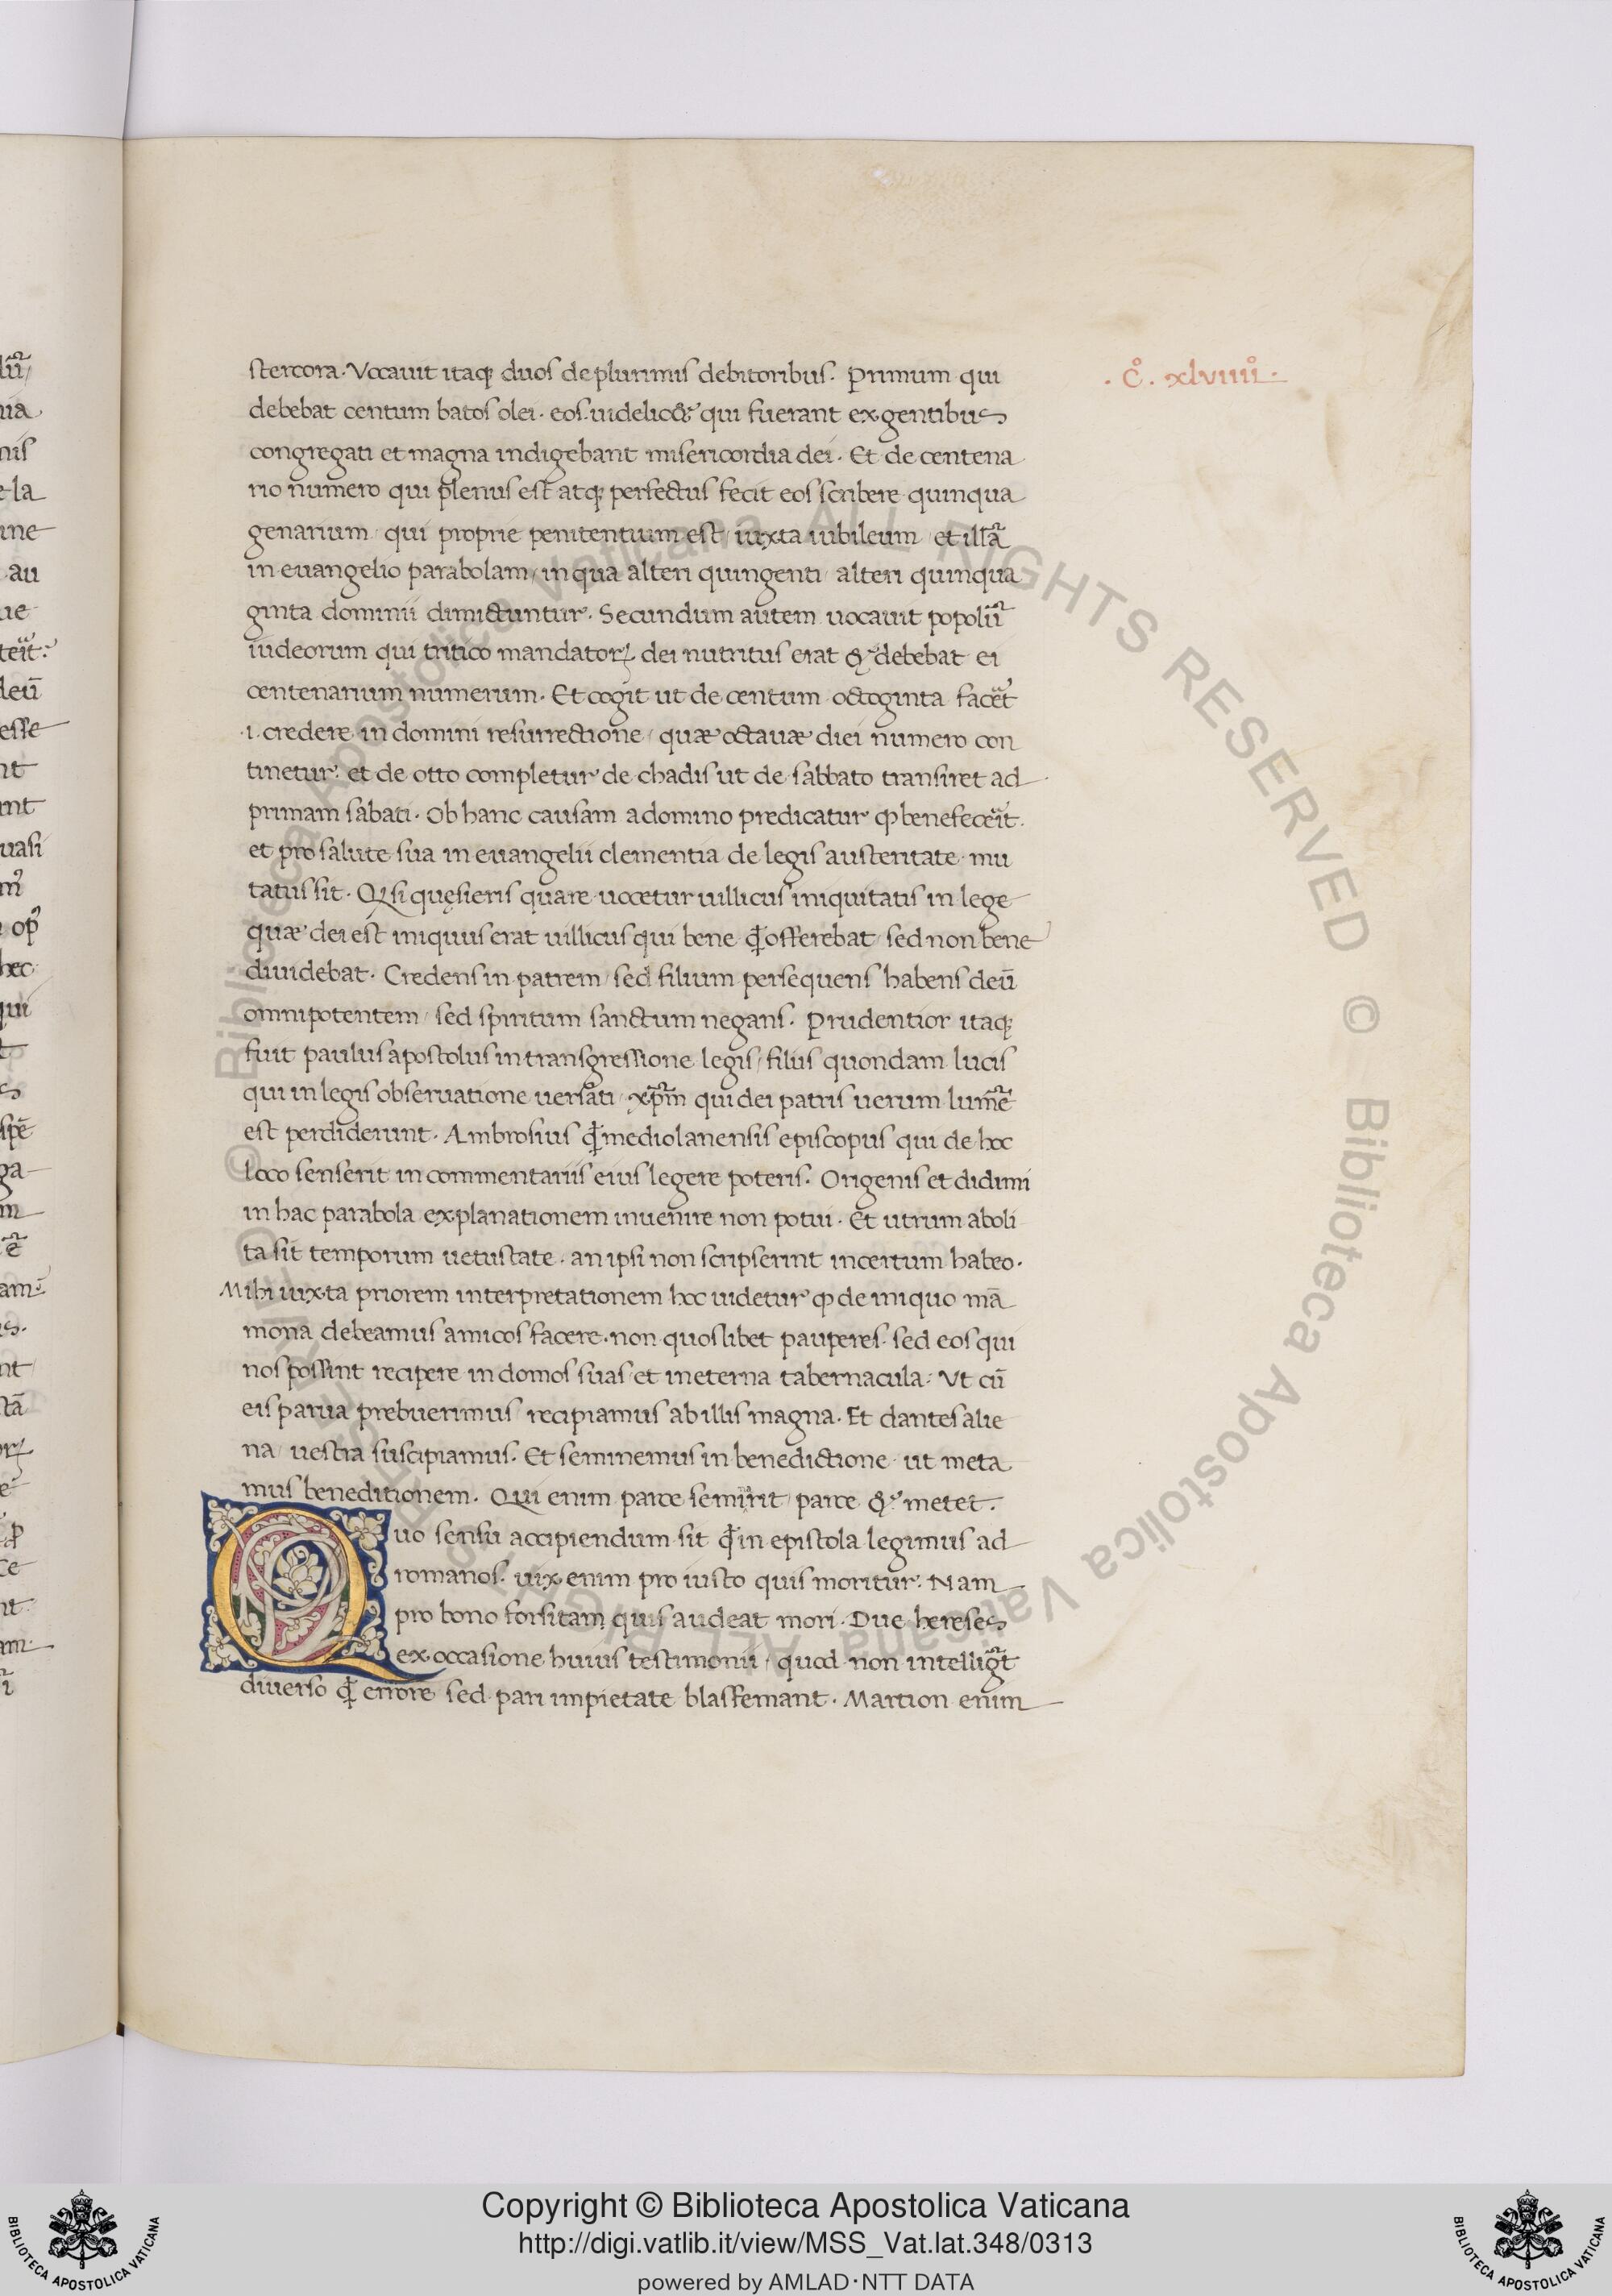 stercora. Vocauit itaq; duos de plurimis debitoribus. Primum qui
.c̊. xlviiii̊.
debebat centum batos olei. eos uidelicet qui fuerant ex gentibus
congregati et magna indigebant misericordia dei. Et de centena
rio numero qui plenus est atq; perfectus fecit eos scribere quinqua
genarium/ qui proprie penitentium est/ iuxta iubileum/ et illā
in euangelio parabolam/ in qua alteri quingenti/ alteri quinqua
ginta dominii dimictuntur. Secundum autem uocauit popolū
iudeorum qui tritico mandatorꝝ dei nutritus erat & debebat ei
centenarium numerum. Et cogit ut de centum octoginta facēt
.i. credere in domini resurrectione/ quæ octauæ diei numero con
tinetur. et de otto completur de chadis ut de sabbato transiret ad
primam sabati. Ob hanc causam a domino predicatur ꝙ benefecēit.
et pro salute sua in euangelii clementia de legis austeritate mu
tatus sit. Qꝫ si quęsieris quare uocetur uillicus iniquitatis in lege
quæ dei est iniquus erat uillicus qui bene q̄ offerebat/ sed non bene
diuidebat. Credens in patrem/ sed filium persequens habens deū
omnipotentem/ sed spiritum sanctum negans. Prudentior itaq;
fuit paulus apostolus in transgressione legis/ filiis quondam lucis
qui in legis obseruatione uersati/ xp̄m qui dei patris uerum lumē
est perdiderunt. Ambrosius q̄ mediolanensis episcopus qui de hoc
loco senserit in commentariis eius legere poteris. Origenis et didimi
in hac parabola explanationem inuenire non potui. Et utrum aboli
ta sit temporum uetustate. an ipsi non scripserint incertum habeo.
Mihi iuxta priorem interpretationem hoc uidetur ꝙ de iniquo mā
mona debeamus amicos facere. non quoslibet pauperes. sed eos qui
nos possint recipere in domos suas/ et in eterna tabernacula: Vt cū
eis parua prebuerimus/ recipiamus ab illis magna. Et dantes alie
na/ uestra suscipiamus. Et seminemus in benedictione/ ut meta
mus beneditionem. Qui enim parce semīrit/ parce & metet.
Quo sensu accipiendum sit q̄ in epistola legimus ad
romanos. uix enim pro iusto quis moritur. Nam
pro bono forsitam quis audeat mori. Due hereses
ex occasione huius testimonii/ quod non intelligūt
diuerso q̄ errore sed pari impietate blasfemant. Martion enim
Copyright © Biblioteca Apostolica Vaticana
http://digi.vatlib.it/view/MSS_Vat.lat.348/0313
powered by AMLAD·NTT DATA
BIBLIOTECA APOSTOLICA VATICANA
BIBLIOTECA APOSTOLICA VATICANA
© Biblioteca Apostolica Vaticana ALL RIGHTS RESERVED
© Biblioteca Apostolica Vaticana ALL RIGHTS RESERVED